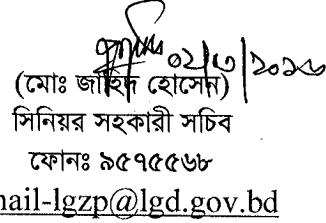 ০২/৩/২০১৬
(মোঃ জাহিদ হোসেন)
সিনিয়র সহকারী সচিব
ফোনঃ ৯৫৭৫৫৬৮
nail-lgzp@lgd.gov.bd